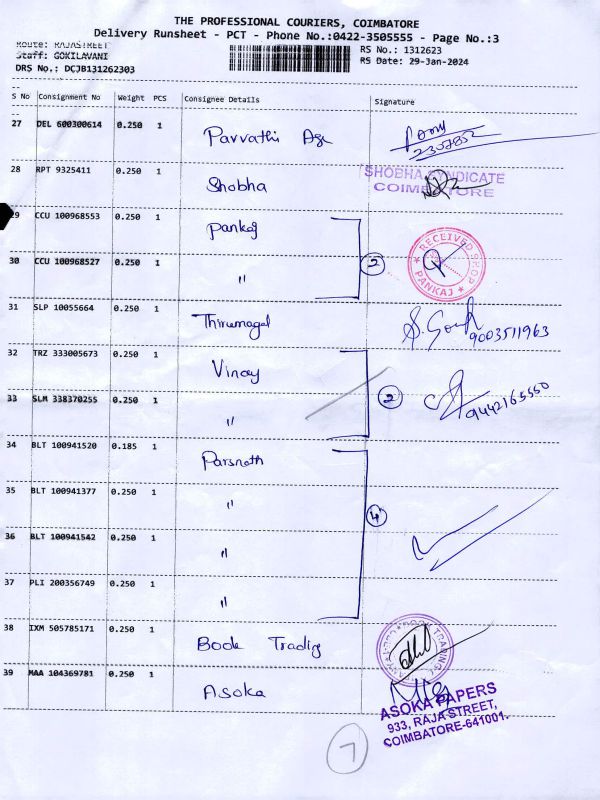 THE PROFESSIONAL COURIERS, COIMBATORE
Delivery Runsheet - PCT - Phone No.:0422-3505555 - Page No.:3
Route: RAJASTREET
Staff: GOKILAVANI
DRS No.: DCJB131262303
RS No.: 1312623
RS Date: 29-Jan-2024
S No Consignment No Weight PCS Consignee Details Signature
27 DEL 600300614 0.250 1 Parvathi Age
28 RPT 9325411 0.250 1 Shobha SHOBHA SYNDICATE
COIMBATORE
29 CCU 100968553 0.250 1 Pankaj
30 CCU 100968527 0.250 1 " 2 RECEIVED SHOP PANKAJ
31 SLP 10055664 0.250 1 Thirumagal 9003511963
32 TRZ 333005673 0.250 1 Vinay
33 SLM 338370255 0.250 1 " 2 9442165550
34 BLT 100941520 0.185 1 Parsnath
35 BLT 100941377 0.250 1 "
4
36 BLT 100941542 0.250 1 "
37 PLI 200356749 0.250 1 "
38 IXM 505785171 0.250 1 Book Trading
39 MAA 104369781 0.250 1 Asoka
ASOKA PAPERS
933, RAJA STREET,
COIMBATORE-641001.
7